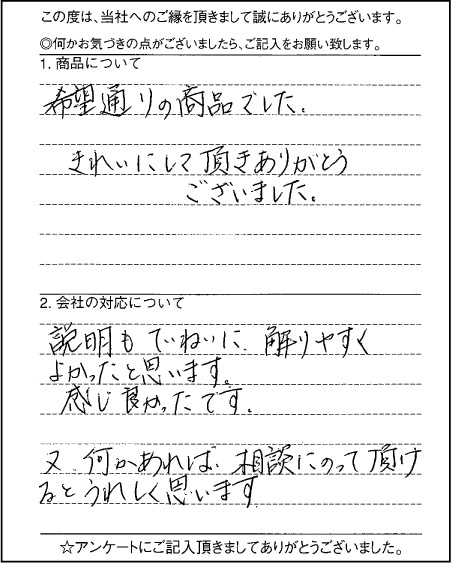 この度は、当社へのご縁を頂きまして誠にありがとうございます。
◎何かお気づきの点がございましたら、ご記入をお願い致します。
1. 商品について
希望通りの商品でした.
きれいにして頂きありがとう
ございました。
2. 会社の対応について
説明もていねいに. 解りやすく
よかったと思います。
感じ良かったです.
又. 何かあれば. 相談にのって頂け
るとうれしく思います
☆アンケートにご記入頂きましてありがとうございました。